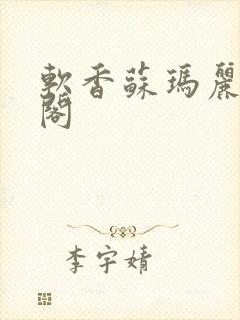 軟香蘇瑪麗
閣
李宇婧